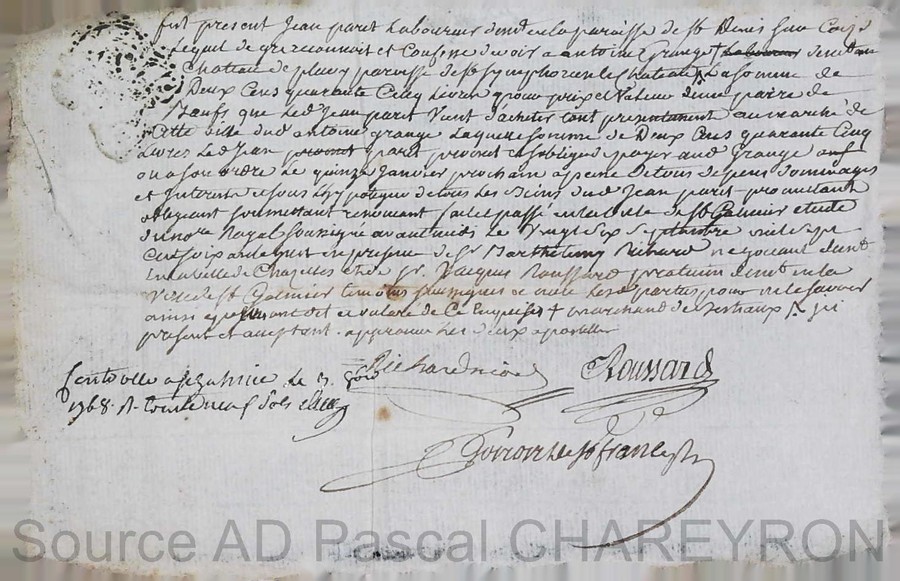 fut present Jean paret Laboureur demt en la paroisse de St Denis Sur Coize
Lequel de gré reconnoit et Confesse devoir a antoine Grange + Laboureur demt au
Chateau de pluvy parroisse de St Symphorien le Chateau La somme de
Deux Cens quarante Cinq Livres pour prix et Valeur d'une paire de
Bœufs que Led Jean paret Vient d'acheter tout presentement au marché de
Cette ville dud antoine grange Laquelle somme de Deux Cens quarante Cinq
Livres Led Jean paret promet et s'oblige de payer aud Grange
ou a son ordre Le quinze Janvier prochain a peine de tous depens Dommages
et Interets et sous L'hypoteque de tous Les Biens dud Jean paret promettant
obligeant soumettant renonçant fait et passé en la ville de St Galmier etude
du nore Royal soussigné avant midi Le Vingt six Septembre mil sept
Cens soixante huit en presence de Sr Barthelemy Richard negociant demt
en la ville de Chazelles et de Sr Jacques Roussard praticien demt en la
Ville de St Galmier temoins soussignés non Les parties pour ne le savoir
ainsi que ont dit de Ce Enquises + marchand de Bestiaux
present et acceptant approuvé Les deux apostilles
Richard
Roussard
Controllé a St Galmier Le 3
1768 R. treize neuf sols
Source AD Pascal CHAREYRON